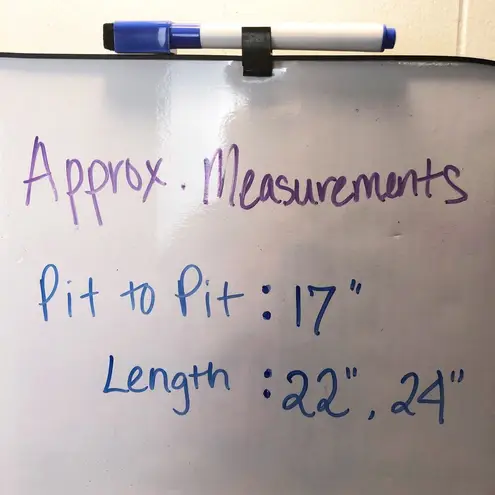 Approx. Measurements
Pit to Pit : 17"
Length : 22", 24"